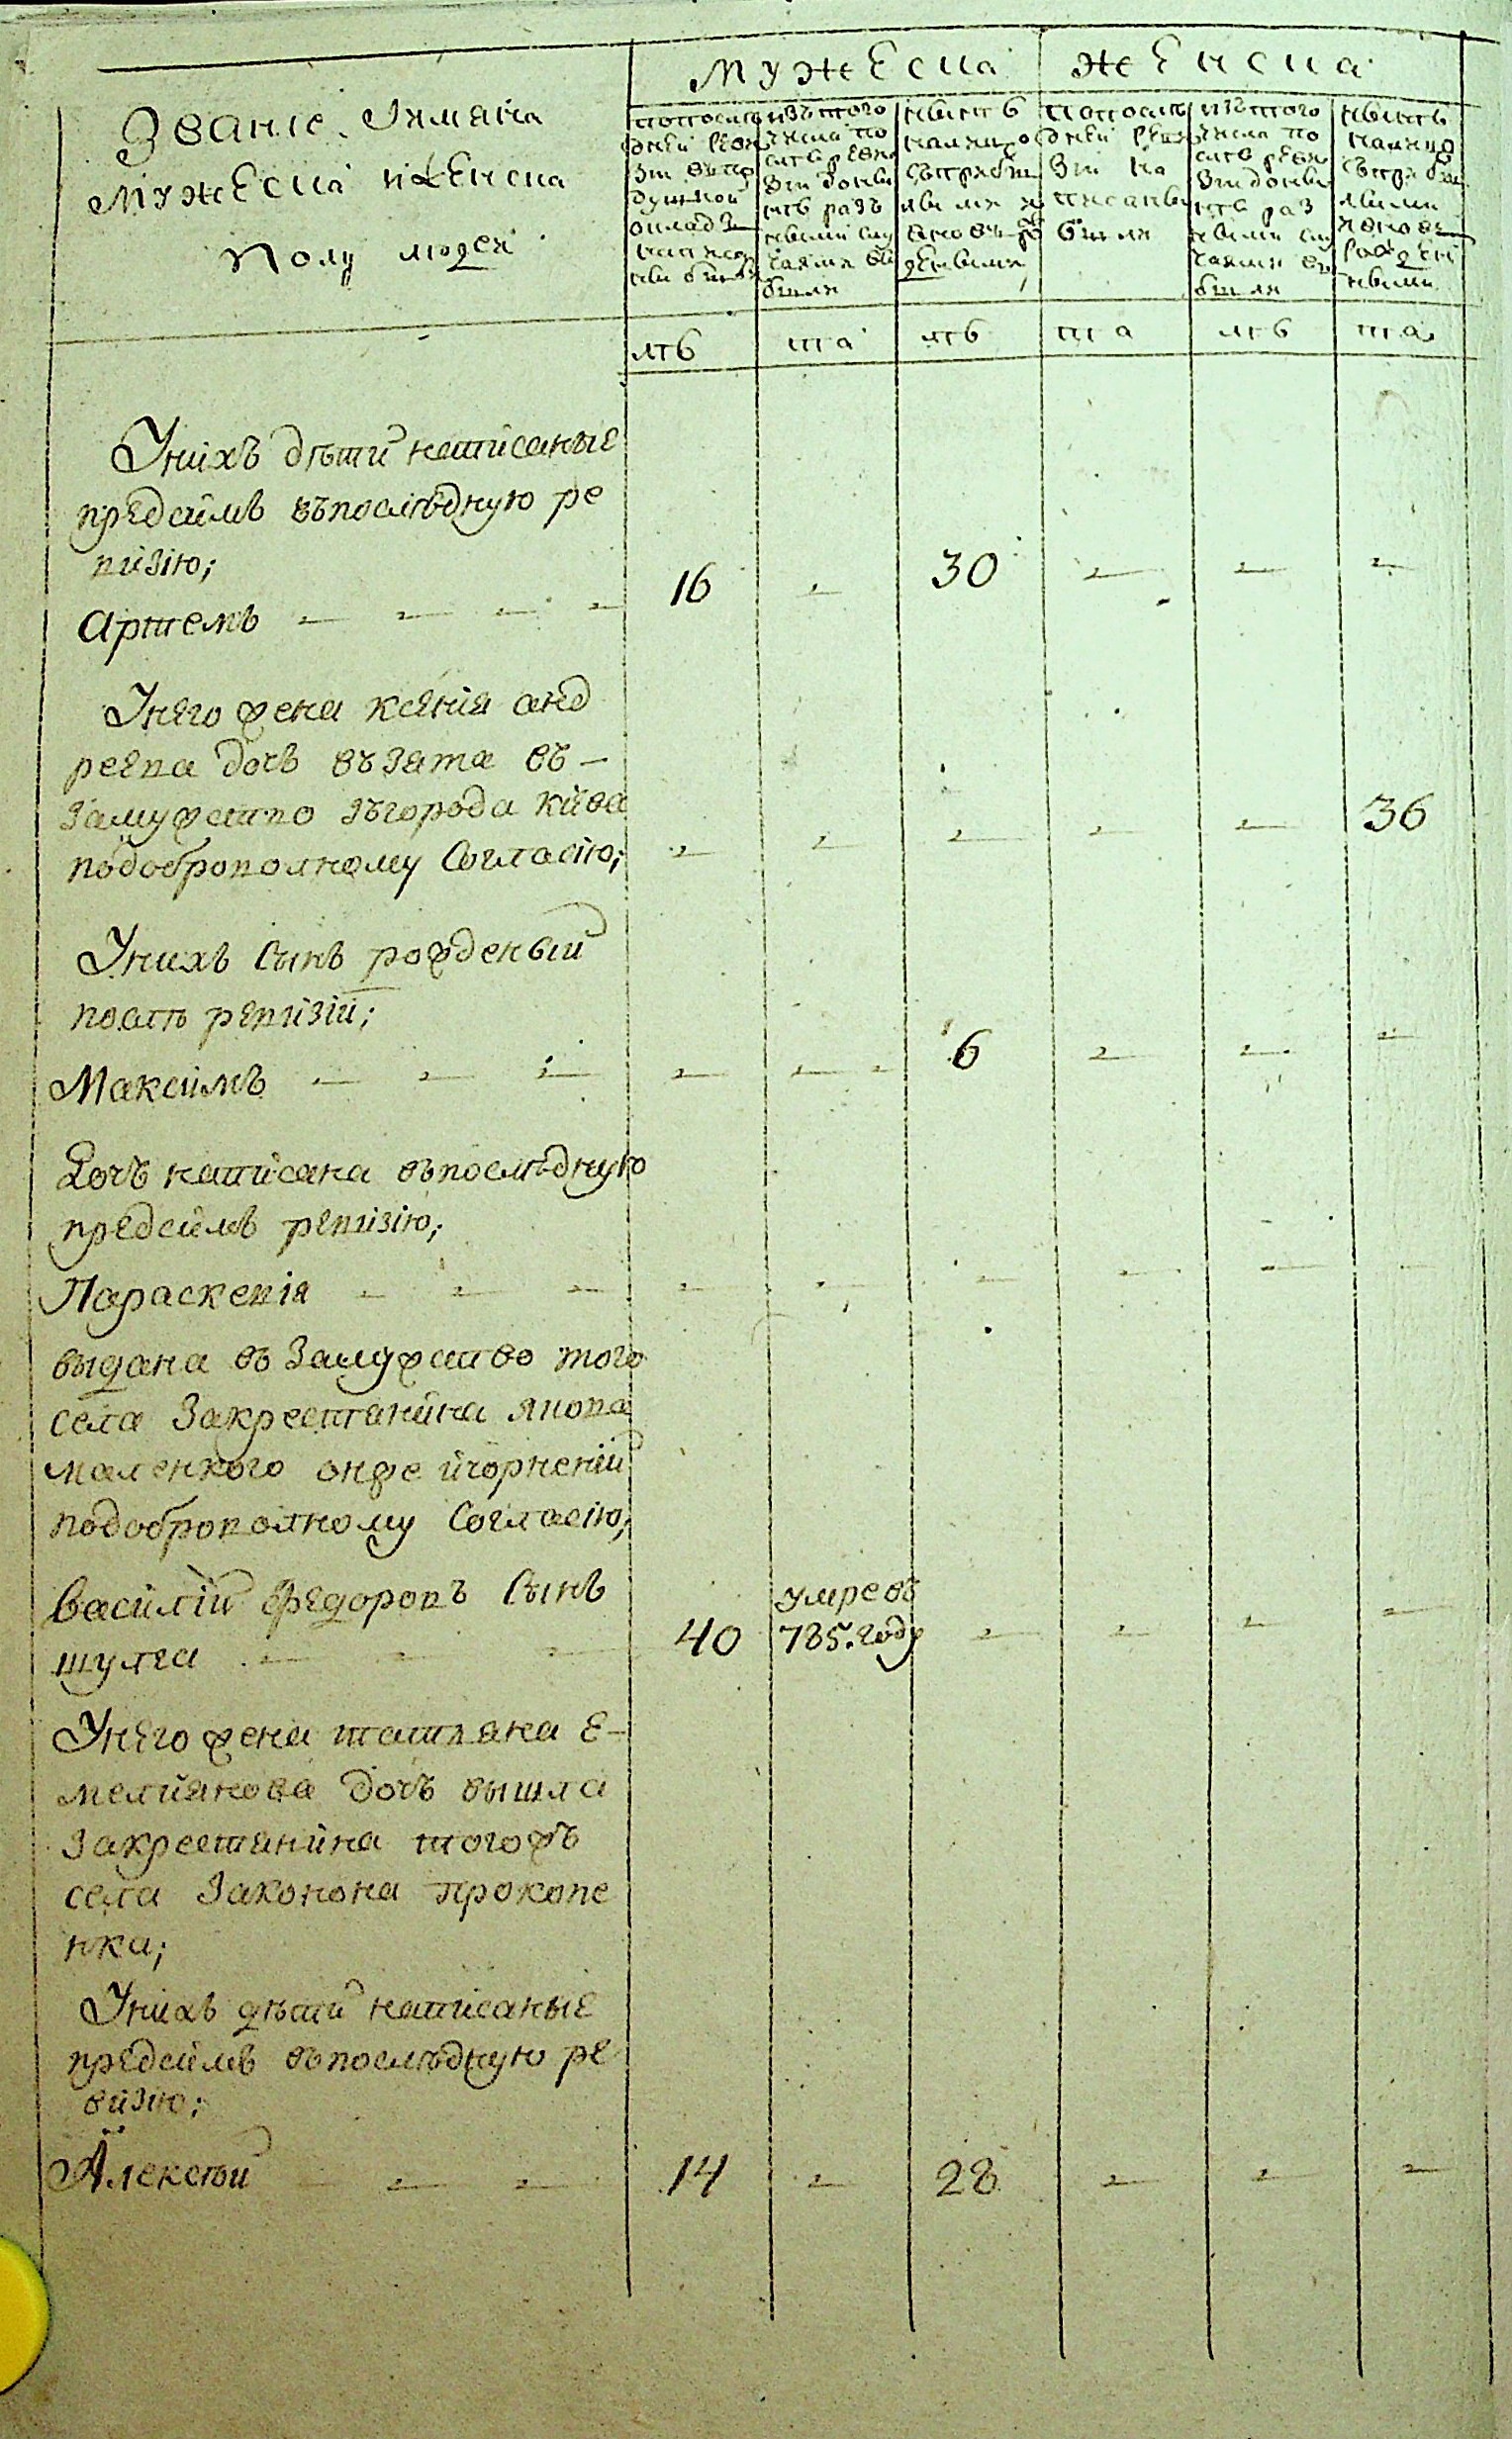 мужеска
женска
Звание Иимяна
мужеска иженска
полу людей
попослѣ
дней реви
зіи въпо
душной
окладъ
написа
ны были
изътого
числа по
слѣ реви
зіи дожвы
нѣ разъ
ными слу
чаями вы
были
нынѣ
налицо
съприбы
лыми и
вновь ро
жденными
попослѣ
дней реви
зіи на
писаны
были
изътого
числа по
слѣ реви
зіи донвы
нѣ раз
ными слу
чаями вы
были
нынѣ
налицо
съприбы
лыми
ивновь
рожден
ными
лѣ та лѣ та лѣ та
Унихъ дѣти написаные
предсимъ въпослѣдную ре
визію;
Артемъ 16 30
Унего жена ксенія анд
реева дочъ въ зята въ
замужство зъгорода кіева
подоброволному согласію; 36
Унихъ сынъ рожденый
послѣ ревизіи;
Максимъ 6
Дочъ написана въпослѣдную
предсимъ ревизію;
Параскевія
выдана въ замужство того
села закрестянина якова
маленкого онже ичорненій
подобровольному согласію;
Василій федоровъ сынъ умре въ
шулга 40 785. году
Унего жена татяна е-
мелиянова дочъ вышла
закрестянина тогожъ
села законона прокопе
нка;
Унихъ дѣти написаные
предсимъ въпослѣдную ре
визію;
Алексѣй 14 28